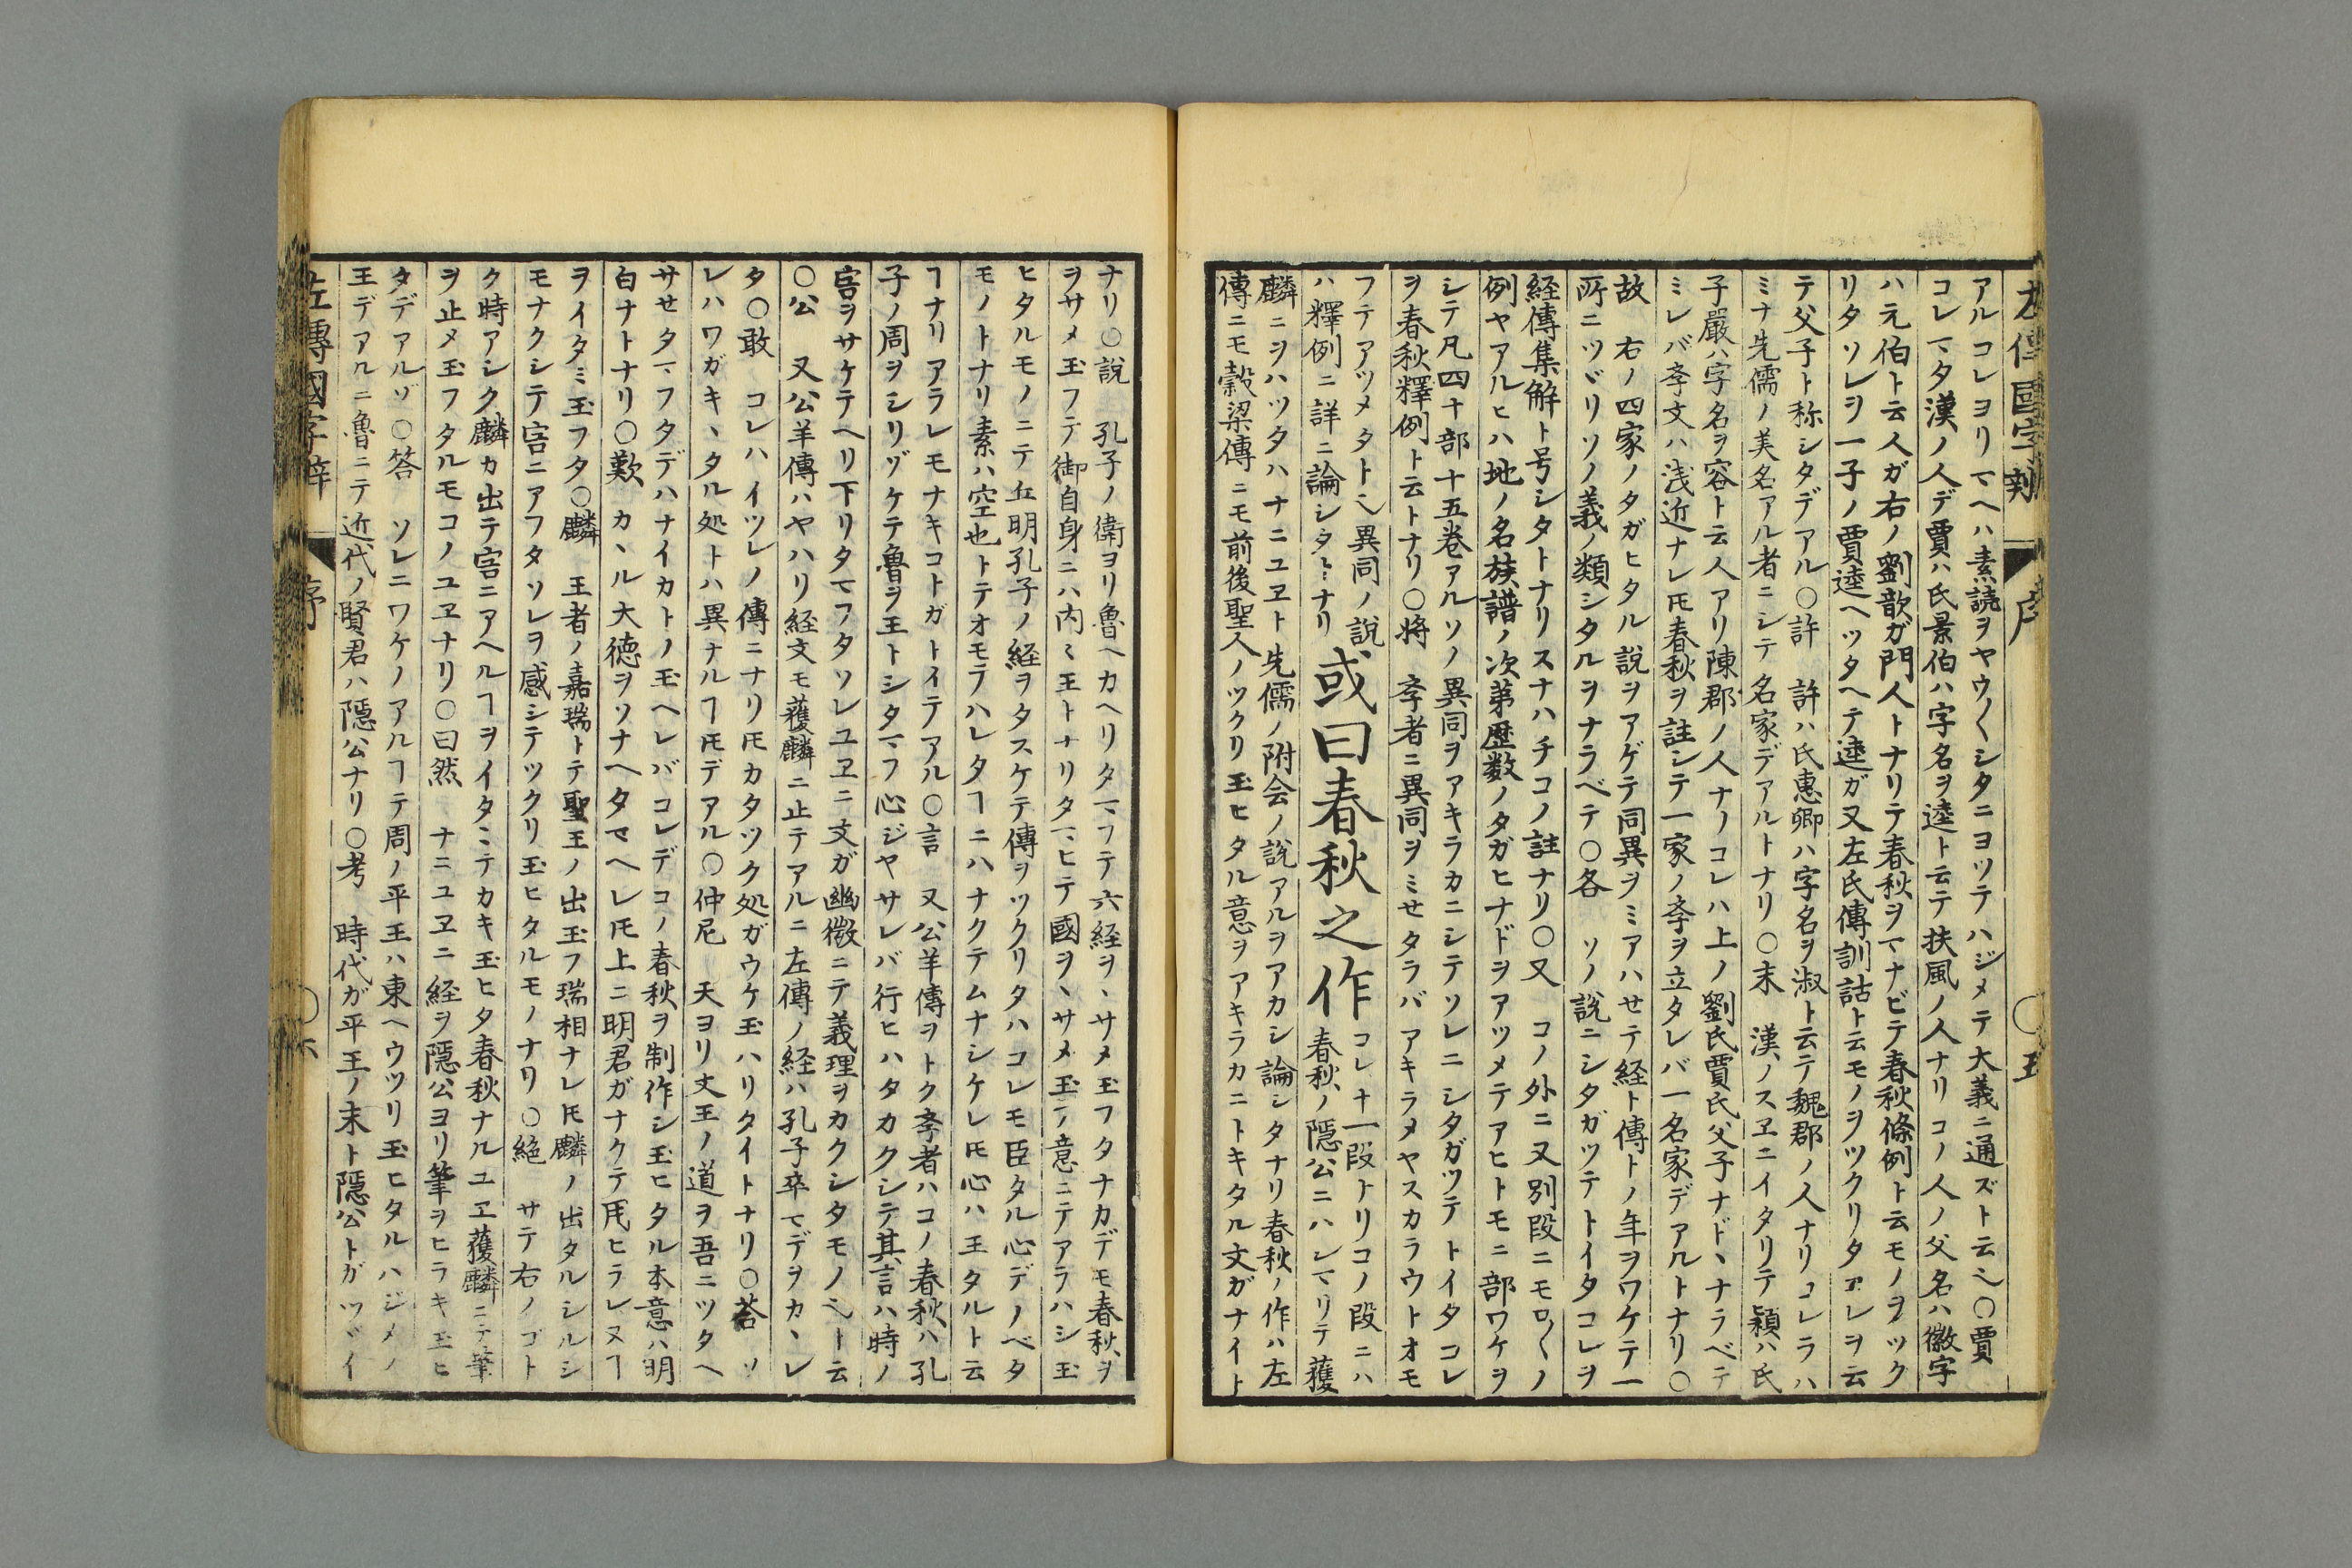 左傳國字辨 序 〇五
アルコレヨリマヘハ素読ヲヤウ〱シタニヨツテハジメテ大義ニ通ズト云ヘ〇賈
コレマタ漢ノ人デ賈ハ氏景伯ハ字名ヲ逵ト云テ扶風ノ人ナリコノ人ノ父名ハ徽字
ハ元伯ト云人ガ右ノ劉歆ガ門人トナリテ春秋ヲマナビテ春秋條例ト云モノヲツク
リタソレヲ一子ノ賈逵ヘツタヘテ逵ガ又左氏傳訓詁ト云モノヲツクリタコレヲ云
テ父子ト称シタデアル〇許 許ハ氏惠卿ハ字名ヲ淑ト云テ魏郡ノ人ナリコレラハ
ミナ先儒ノ美名アル者ニシテ名家デアルトナリ〇末 漢ノスヱニイタリテ穎ハ氏
子嚴ハ字名ヲ容ト云人アリ陳郡ノ人ナリコレハ上ノ劉氏賈氏父子ナドヽナラベテ
ミレバ斈文ハ浅近ナレ𪜈春秋ヲ註シテ一家ノ斈ヲ立タレバ一名家デアルトナリ〇
故 右ノ四家ノタガヒタル說ヲアゲテ同異ヲミアハせテ経ト傳トノ年ヲワケテ一
所ニツヾリソノ義ノ類シタルヲナラベテ〇各 ソノ說ニシタガツテトイタコレヲ
経傳集解ト号シタトナリスナハチコノ註ナリ〇又 コノ外ニ又別段ニモロ〱ノ
例ヤアルヒハ地ノ名族譜ノ次第歴数ノタガヒナドヲアツメテアヒトモニ部ワケヲ
シテ凡四十部十五巻アルソノ異同ヲアキラカニシテソレニシタガツテトイタコレ
ヲ春秋釋例ト云トナリ〇将 斈者ニ異同ヲミせタラバアキラメヤスカラウトオモ
フテアツメタトヘ異同ノ說
ハ釋例ニ詳ニ論シタトナリ
或曰春秋之作
コレナ一段トリコノ段ニハ
春秋ノ隠公ニハシマリテ獲
麟ニヲハツタハナニユヱト先儒ノ附会ノ說アルヲアカシ論シタナリ春秋ノ作ハ左
傳ニモ穀梁傳ニモ前後聖人ノツクリ玉ヒタル意ヲアキラカニトキタル文ガナイト
ナリ〇說 孔子ノ衛ヨリ魯ヘカヘリタマフテ六経ヲヽサメ玉フタナカデモ春秋ヲ
ヲサメ玉フテ御自身ニハ内〻王トナリタマヒテ國ヲヽサメ玉フ意ニテアラハシ玉
ヒタルモノニテ丘明孔子ノ経ヲタスケテ傳ヲツクリタハコレモ臣タル心デノベタ
モノトナリ素ハ空也トテオモテハレタヿニハナクテムナシケレ𪜈心ハ王タルト云
ヿナリアラレモナキコトガトイテアル〇言 又公羊傳ヲトク斈者ハコノ春秋ハ孔
子ノ周ヲシリゾケテ魯ヲ王トシタマフ心ジヤサレバ行ヒハタカクシテ其言ハ時ノ
害ヲサケテヘリ下リタマフタソレユヱニ文ガ幽微ニテ義理ヲカクシタモノヘト云
〇公 又公羊傳ハヤハリ経文モ獲麟ニ止テアルニ左傳ノ経ハ孔子卒マデヲカヽレ
タ〇敢 コレハイツレノ傳ニナリ𪜈カタツク処ガウケ玉ハリタイトナリ〇荅 ソ
レハワガキヽタル処トハ異ナルヿ𪜈デアル〇仲尼 天ヨリ文王ノ道ヲ吾ニツタヘ
サせタマフタデハナイカトノ玉ヘレバコレデコノ春秋ヲ制作シ玉ヒタル本意ハ明
白ナトナリ〇歎 カヽル大徳ヲソナヘタマヘレ𪜈上ニ明君ガナクテ用ヒラレヌヿ
ヲイタミ玉フタ〇麟 王者ノ嘉瑞トテ聖王ノ出玉フ瑞相ナレ𪜈麟ノ出タルシルシ
モナクシテ害ニアフタソレヲ感シテツクリ玉ヒタルモノナリ〇絶 サテ右ノゴト
ク時アシク麟カ出テ害ニアヘルヿヲイタミテカキ玉ヒタ春秋ナルユヱ獲麟ニテ筆
ヲ止メ玉フタルモコノユヱナリ〇曰然 ナニユヱニ経ヲ隠公ヨリ筆ヲヒラキ玉ヒ
タデアルゾ〇答 ソレニワケノアルヿテ周ノ平王ハ東ヘウツリ玉ヒタルハジメノ
王デアルニ魯ニテ近代ノ賢君ハ隠公ナリ〇考 時代ガ平王ノ末ト隠公トガツヾイ
左傳國字辨 序 〇六